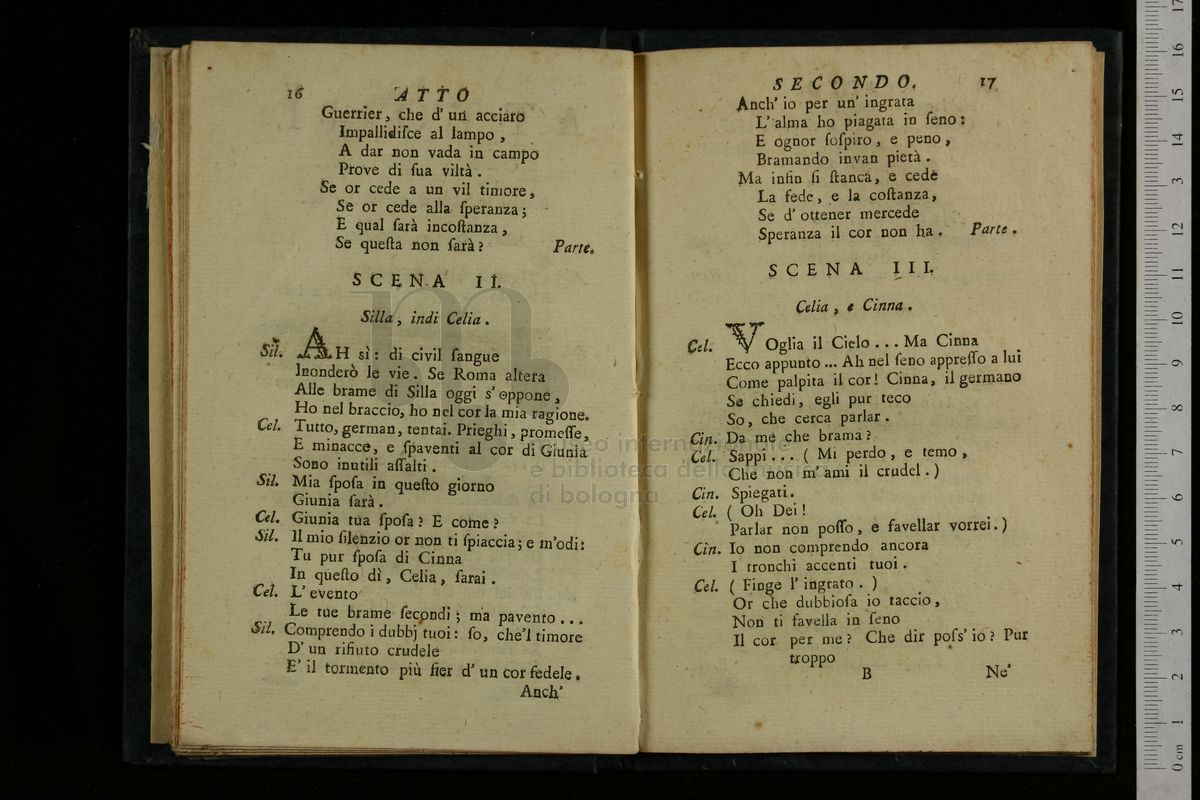 16 ATTO
Guerrier, che d' un acciaro
Impallidiſce al lampo,
A dar non vada in campo
Prove di ſua viltà.
Se or cede a un vil timore,
Se or cede alla ſperanza;
E qual ſarà incoſtanza,
Se queſta non ſarà? Parte.
SCENA II.
Silla, indi Celia.
Sil. AH sì: di civil ſangue
Inonderò le vie. Se Roma altera
Alle brame di Silla oggi s' oppone,
Ho nel braccio, ho nel cor la mia ragione.
Cel. Tutto, german, tentai. Prieghi, promeſſe,
E minacce, e ſpaventi al cor di Giunia
Sono inutili aſſalti.
Sil. Mia ſpoſa in queſto giorno
Giunia ſarà.
Cel. Giunia tua ſpoſa? E come?
Sil. Il mio ſilenzio or non ti ſpiaccia; e m'odi:
Tu pur ſpoſa di Cinna
In queſto dì, Celia, ſarai.
Cel. L' evento
Le tue brame ſecondi; ma pavento...
Sil. Comprendo i dubbj tuoi: ſo, che'l timore
D' un rifiuto crudele
E' il tormento più fier d' un cor fedele.
Anch'
SECONDO. 17
Anch' io per un' ingrata
L' alma ho piagata in ſeno:
E ognor ſoſpiro, e peno,
Bramando invan pietà.
Ma infin ſi ſtanca, e cede
La fede, e la coſtanza,
Se d' ottener mercede
Speranza il cor non ha. Parte.
SCENA III.
Celia, e Cinna.
Cel. VOglia il Cielo... Ma Cinna
Ecco appunto... Ah nel ſeno appreſſo a lui
Come palpita il cor! Cinna, il germano
Se chiedi, egli pur teco
So, che cerca parlar.
Cin. Da me che brama?
Cel. Sappi... ( Mi perdo, e temo,
Che non m' ami il crudel. )
Cin. Spiegati.
Cel. ( Oh Dei!
Parlar non poſſo, e favellar vorrei. )
Cin. Io non comprendo ancora
I tronchi accenti tuoi.
Cel. ( Finge l' ingrato. )
Or che dubbioſa io taccio,
Non ti favella in ſeno
Il cor per me? Che dir poſs' io? Pur
troppo
B Ne'
museo internazionale
e biblioteca della musica
di bologna
0 cm 1 2 3 4 5 6 7 8 9 10 11 12 13 14 15 16 17